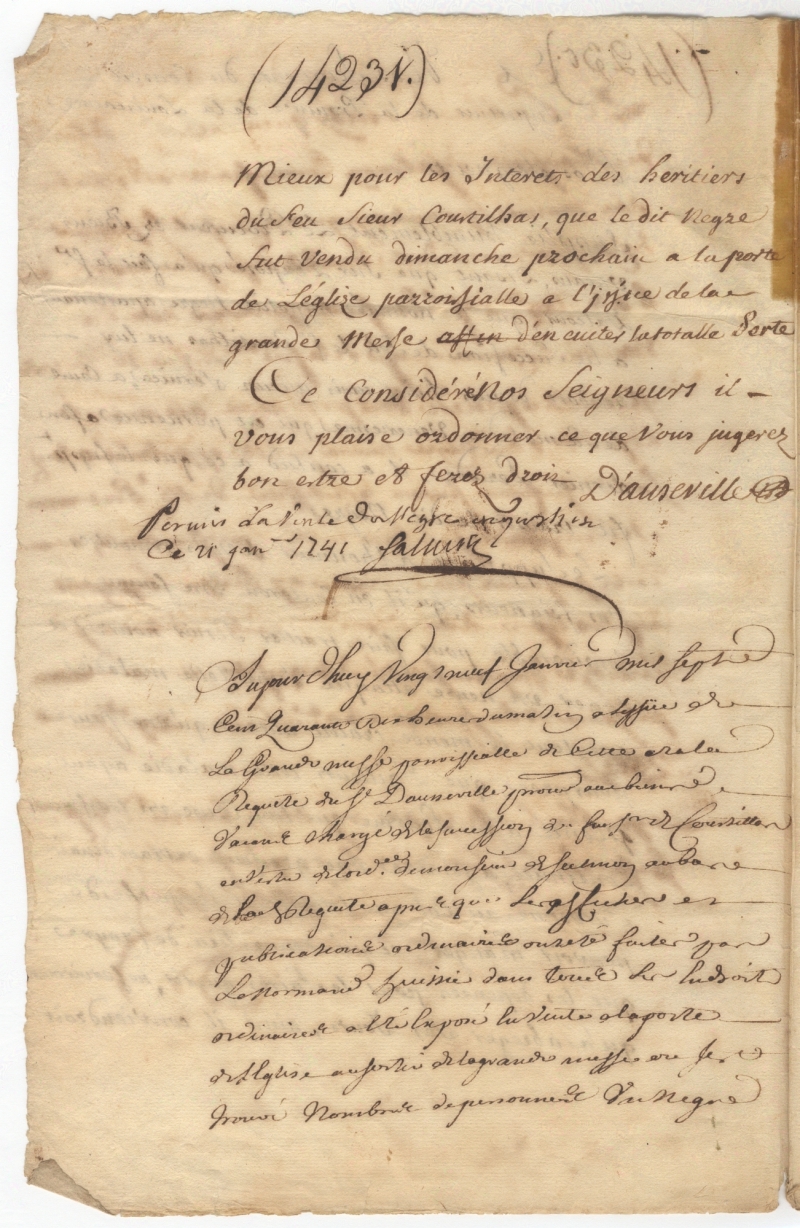 (1423 V.)
Mieux pour les Interets des heritiers
du feu Sieur Courtilhas, que le dit Negre
fut vendu dimanche prochain a la porte
de L'églize parroissialle a l'issüe de la
grande Messe affin d'en eviter la totalle Perte
Ce Considéré Nos Seigneurs il
vous plaise ordonner ce que Vous jugerez
bon estre et ferez droit D'auseville
Permis La Vente du Negre en question
Ce 21 janr. 1741 Salmon
Aujourdhuy Vingt neuf Janvier mil sept
Cent Quarante Dix heures du matin a lissüe de
La Grande messe parroissialle de Cette a la
Requete du Sr. Dauseville procur aux biens
Vacants chargé de la succession de feu Sr. de Courtillas
en Vertu de lordce. de monsieur de Salmon au bas
de la Requete apres que Les affiches et
publications ordinaires ont eté faites par
Le Normand huissier dans tous Les Endroits
ordinaires a eté Exposé En Vente a la porte
de l'Eglise au sortir de la grande messe ou Sest
trouvé Nombres de personnes Un Negre